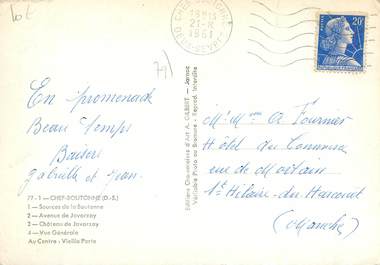 Lot
CHEF-BOUTONNE
21-8
1961
DEUX-SEVRES
79
20F
En promenade
Beau temps
Baisers
Gabrielle et Jean
Mr Mme A Fournier
Hôtel du Commerce
rue de Mortain
St Hilaire-du-Harcouet
(Manche)
Editions Chaumeix d'Art A. GILBERT - Jarnac
Véritable Photo au Bromure - Reprod. interdite
77-1 - CHEF-BOUTONNE (D.-S.)
1 - Sources de la Boutonne
2 - Avenue de Javarzay
3 - Château de Javarzay
4 - Vue Générale
Au Centre - Vieille Porte